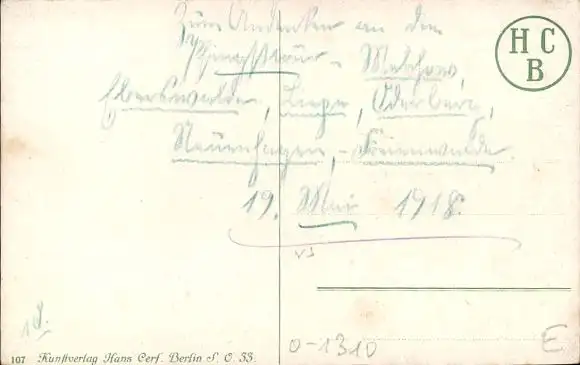 Zum Andenken an die
Pfingsttour - Melchow,
Eberswalde, Liepe, Oderberg,
Neuenhagen, - Freienwalde.
19. Mai 1918.
H C
B
18.
0-1310
E
107 Kunstverlag Hans Cerf. Berlin S. O. 33.